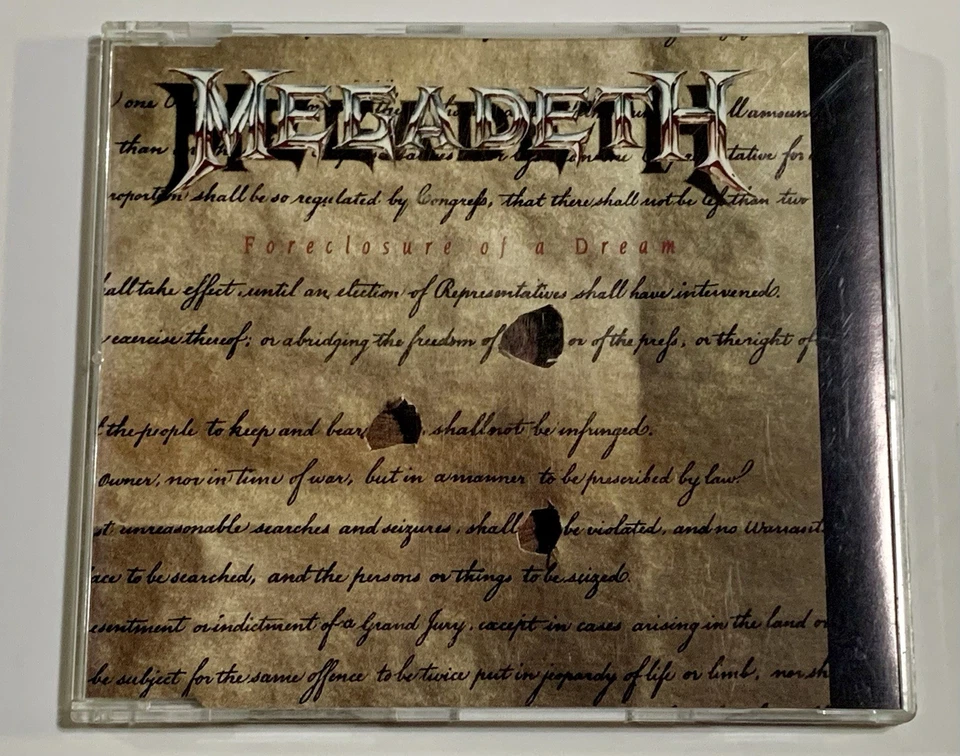 MEGADETH
) one
ll amoun
than
tative for
roportion shall be so regulated by Congress, that there shall not be less than two
Foreclosure of a Dream
hall take effect, until an election of Representatives shall have intervened.
exercise thereof; or abridging the freedom of or of the press, or the right of
the people to keep and bear shall not be infringed.
Owner, nor in time of war, but in a manner to be prescribed by law.
st unreasonable searches and seizures, shall be violated, and no Warrant
ace to be searched, and the persons or things to be seized.
esentment or indictment of a Grand Jury, except in cases arising in the land or
be subject for the same offence to be twice put in jeopardy of life or limb, nor sh